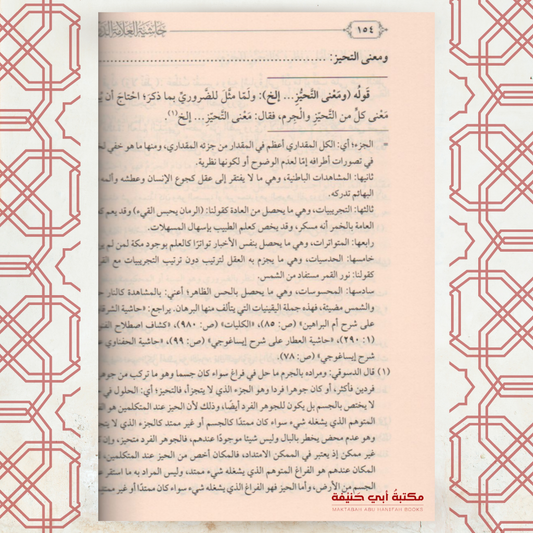 ١٥٤
حَاشِيَة العَلَّامَة
ومعنى التحيز: ........................
قَولُه (ومَعْنى التَّحيُّز... إلخ): ولَمّا مثَّلَ للضَّروريِّ بما ذكرَ؛ احتاجَ أن
مَعْنى كلٍّ من التَّحيُّزِ والْجِرمِ، فقال: مَعْنى التَّحيُّز... إلخ(١).
= الجزء؛ أي: الكل المقداري أعظم في المقدار من جزئه المقداري، ومنها ما هو خفي
في تصورات أطرافه إمّا لعدم الوضوح أو لكونها نظرية.
ثانيها: المشاهدات الباطنية، وهي ما لا يفتقر إلى عقل كجوع الإنسان وعطشه وألمه
البهائم تدركه.
ثالثها: التجريبيات، وهي ما يحصل من العادة كقولنا: (الرمان يحبس القيء) وقد يعم
العامة بالخمر أنه مسكر، وقد يخص كعلم الطبيب بإسهال المسهلات.
رابعها: المتواترات، وهي ما يحصل بنفس الأخبار تواترًا كالعلم بوجود مكة لمن لم
خامسها: الحدسيات، وهي ما يجزم به العقل لترتيب دون ترتيب التجريبيات مع
كقولنا: نور القمر مستفاد من الشمس.
سادسها: المحسوسات، وهي ما يحصل بالحس الظاهر؛ أعني: بالمشاهدة كالنار
والشمس مضيئة، فهذه جملة اليقينيات التي يتألف منها البرهان. يراجع: «حاشية
على شرح أم البراهين» (ص: ٨٥)، «الكليات» (ص: ٩٨٠)، «كشاف اصطلاح
(١: ٢٩٠)، «حاشية العطار على شرح إيساغوجي» (ص: ٩٩)، «حاشية الحفناوي
شرح إيساغوجي» (ص: ٧٨).
(١) قال الدسوقي: ومراده بالجرم ما حل في فراغ سواء كان جسما وهو ما تركب من
فردين فأكثر، أو كان جوهرا فردا وهو الجزء الذي لا يتجزأ، فالتحيز؛ أي: الحلول في
لا يختص بالجسم بل يكون للجوهر الفرد أيضًا، وذلك لأن الحيز عند المتكلمين هو
المتوهم الذي يشغله شيء سواء كان ممتدًا كالجسم أو غير ممتد كالجزء الذي لا
وهو عدم محض يخطر بالبال وليس شيئا موجودًا عندهم، فالجوهر الفرد متحيز، وإن
غير ممكن إذ يعتبر في الممكن الامتداد، فالمكان أخص من الحيز عند المتكلمين،
المكان عندهم هو الفراغ المتوهم الذي يشغله شيء ممتد، وليس المراد به ما استقر
الجسم من الأرض، وأما الحيز فهو الفراغ الذي يشغله شيء سواء كان ممتدًا أو غير
مكتبة أبي حنيفة
MAKTABAH ABU HANIFAH BOOKS